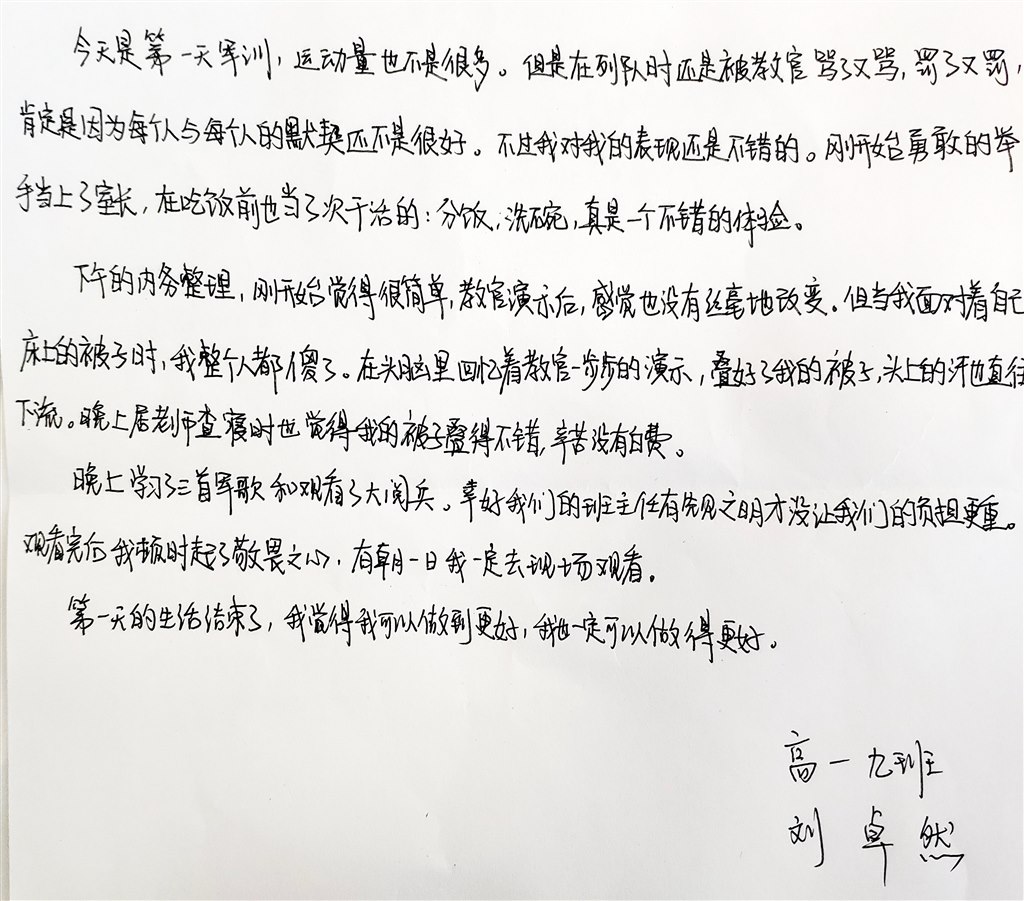 今天是第一天军训，运动量也不是很多。但是在列队时还是被教官骂了又骂，罚了又罚，
肯定是因为每个人与每个人的默契还不是很好。不过我对我的表现还是不错的。刚开始勇敢的举
手当上了室长，在吃饭前也当了次干活的：分饭，洗碗，真是一个不错的体验。
下午的内务整理，刚开始觉得很简单，教官演示后，感觉也没有丝毫地改变。但当我面对着自己
床上的被子时，我整个人都傻了。在头脑里回忆着教官一步步的演示，叠好了我的被子，头上的汗也直往
下流。晚上居老师查寝时也觉得我的被子叠得不错，辛苦没有白费。
晚上学习了三首军歌和观看了大阅兵。幸好我们的班主任有先见之明才没让我们的负担更重。
观看完后我顿时起了敬畏之心，有朝一日我一定去现场观看。
第一天的生活结束了，我觉得我可以做到更好，我也一定可以做得更好。
高一九班
刘卓然